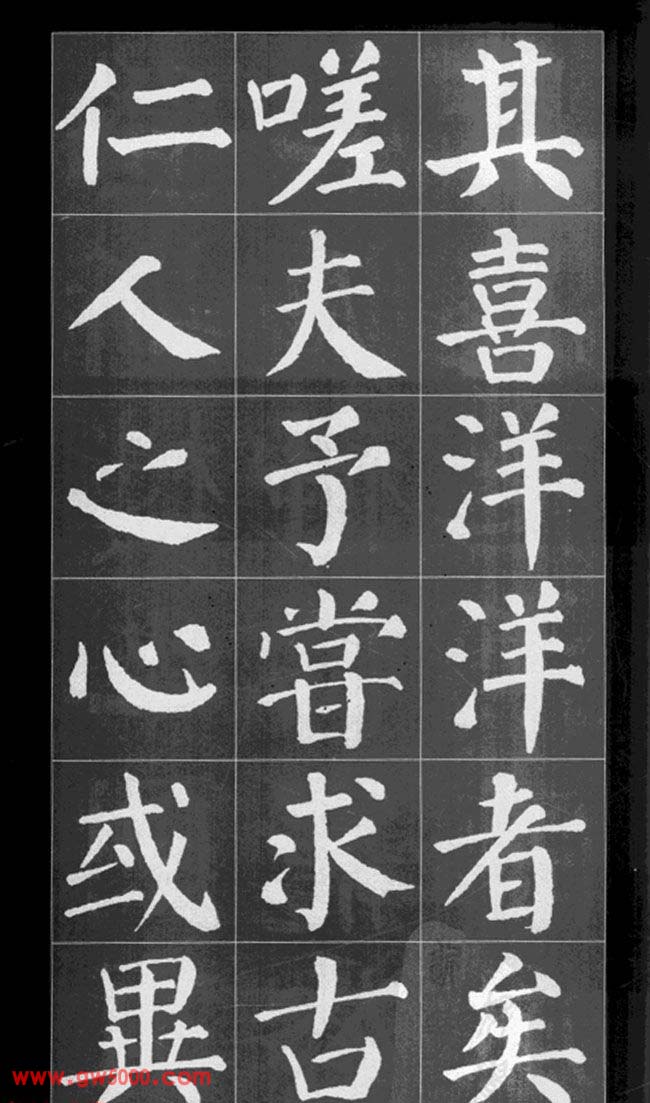 其喜洋洋者矣
嗟夫予嘗求古
仁人之心或異
www.gw5000.com